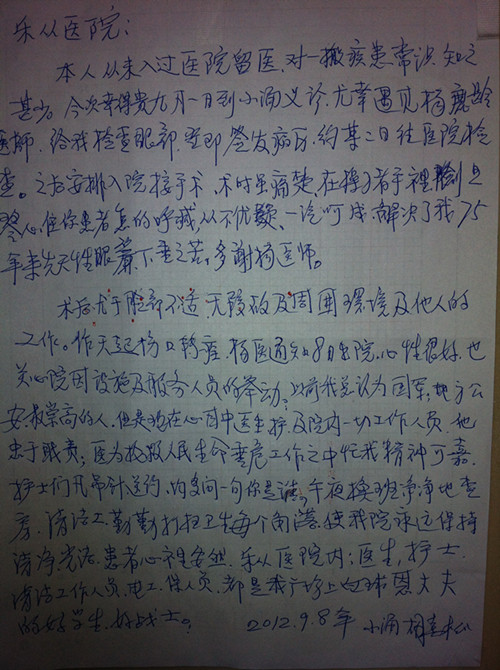 乐从医院:
本人从来入过医院留医,对一搬疾患常识知之
甚少。今次幸得贵九月一日到小涌义诊,尤幸遇见杨庆龄
医师,给我检查眼部,立即签发病历,约某二日往医院检
查。之后安排入院接手术,术时虽痛楚,在操刀者手裡
任你患者怎的呼喊,从不忧疑,一气呵成,解决了我75
年来先天性眼幕下垂之苦,多谢杨医师。
术后尤于眼部不适,无暇故及周围环境及他人的
工作。昨天起伤口转痊,杨医通知8日出院,心性很好,也
关心院因设施及服务人员的举动,以前我总认为国军,地方公
安,最崇高的人,但是现在心目中医生护及院内一切工作人员,他
忠于职责,医为救极人民生命垂危工作之中忙我精神可嘉,
护士们凡吊针送药,均多问一句你是谁,午夜换班净净地查
房,清洁工勤勤打扫卫生每个角落,使我院永远保持
清净光洁,患者心裡安然,乐从医院内:医生,护士,
清洁工作人员,电工,保人员,都是我广场上白球恩大夫
的好学生,好战士。
2012.9.8年 小涌